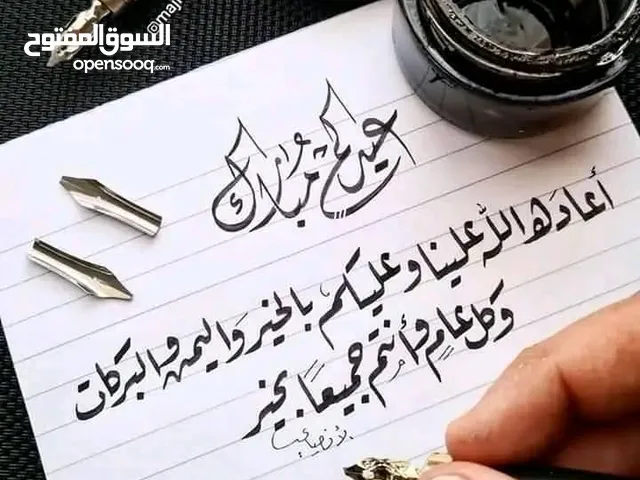 السوق المفتوح
opensooq.com
@maj
عيدكم مبارك
أعاده الله علينا وعليكم بالخير واليمن والبركات
وكل عام وأنتم جميعًا بخير